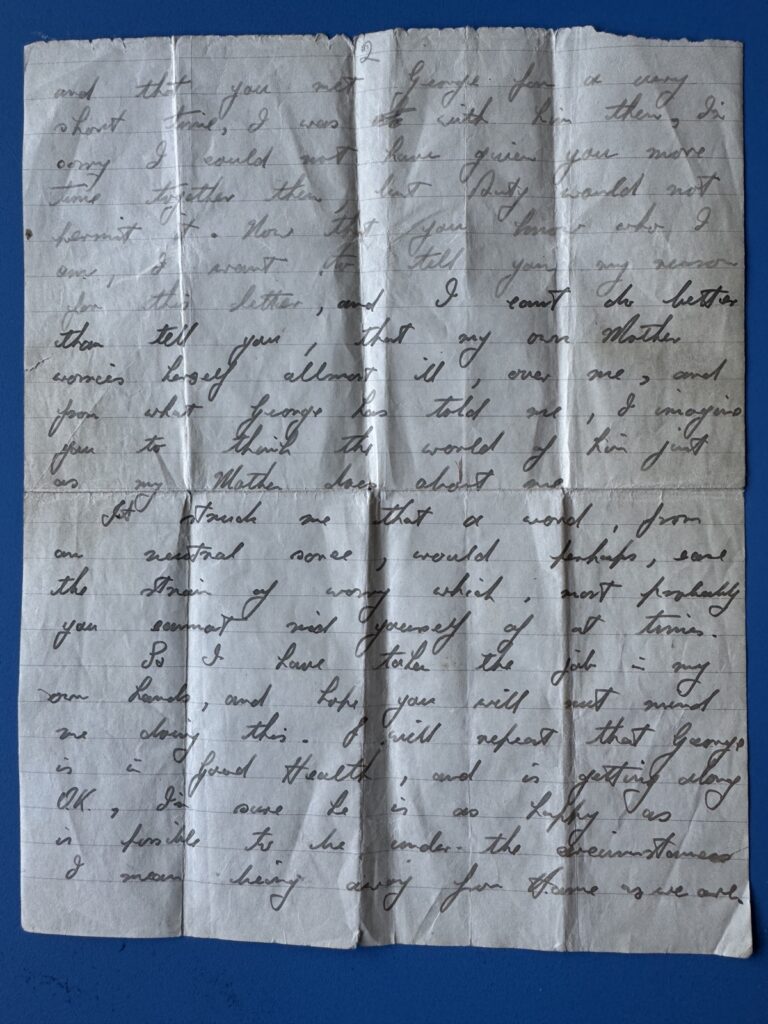 2
and that you met George for a very
short time, I was with him then, I'm
sorry I could not have given you more
time together then, but Duty would not
permit it. Now that you know who I
am, I want to tell you my reason
for this letter, and I can't do better
than tell you, that my own Mother
worries herself allmost ill, over me, and
from what George has told me, I imagine
you to think the world of him just
as my Mother does about me.
It struck me that a word, from
an neutral sorce, would perhaps, ease
the strain of worry which, most probably
you cannot rid yourself of at times.
So I have taken the job in my
own hands, and hope you will not mind
me doing this. I will repeat that George
is in Good Health, and is getting along
O.K., I'm sure he is as happy as
is possible to be under the circumstances
I mean being away from Home as we are.